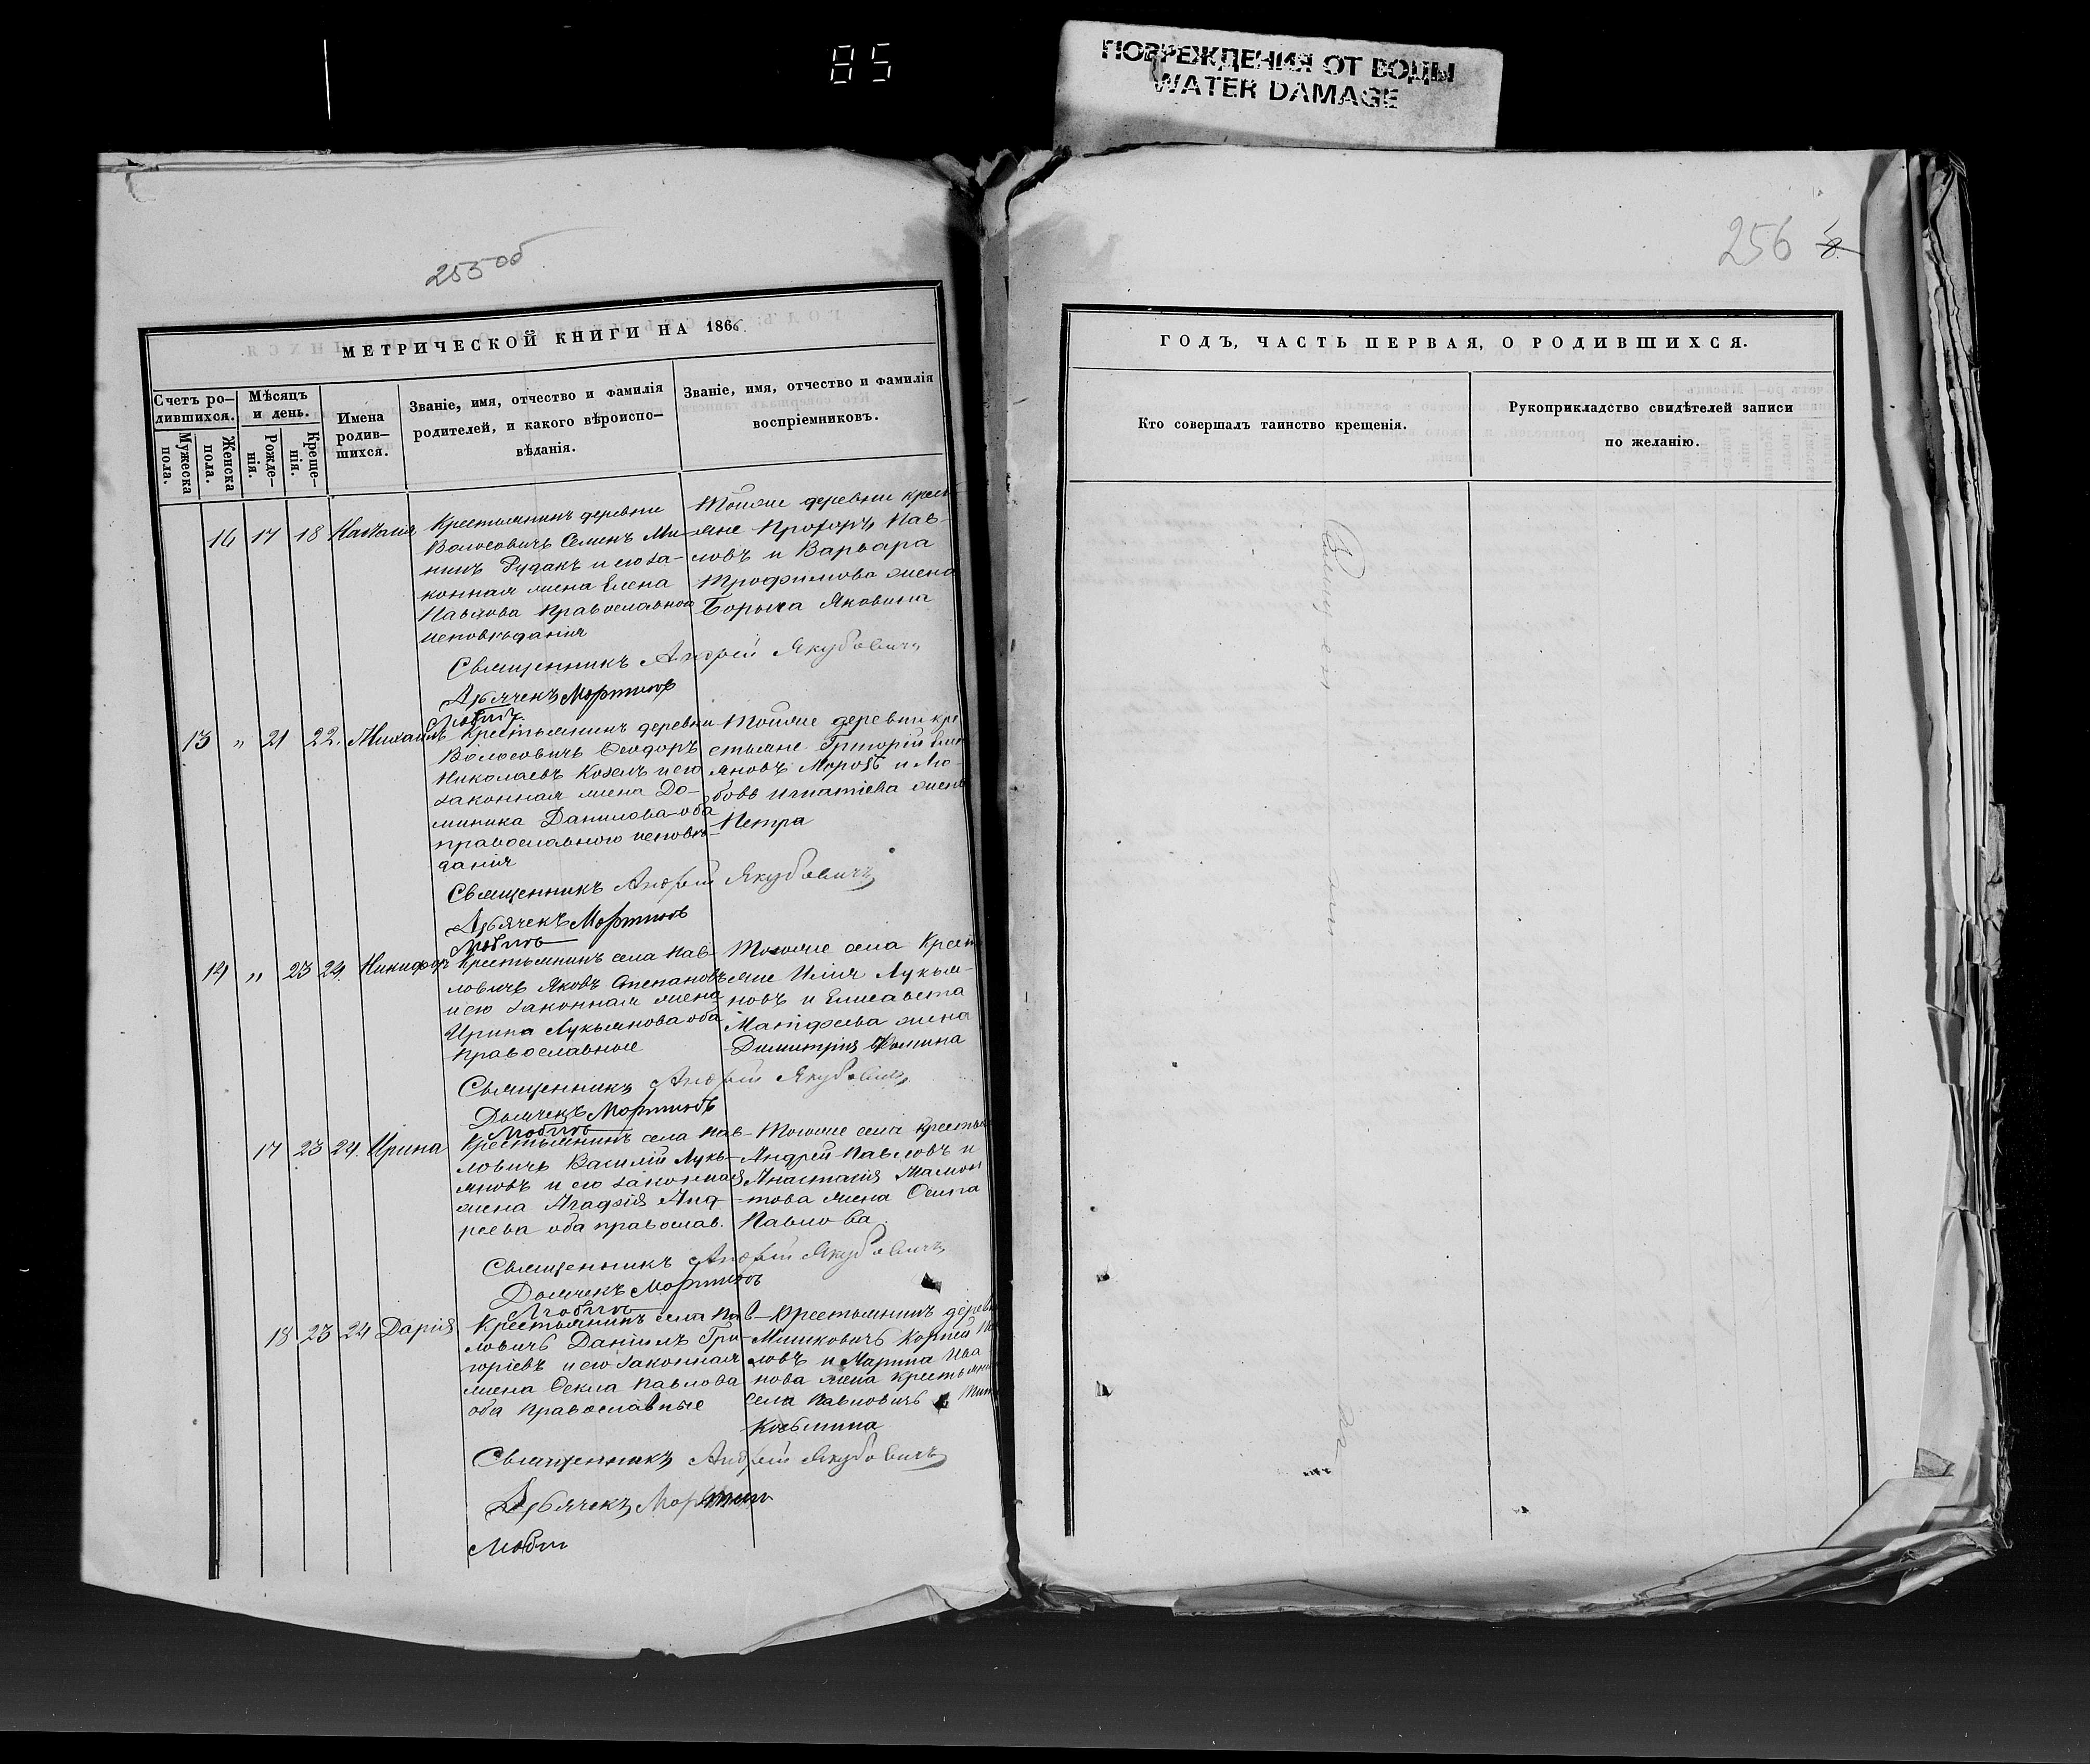 85
ПОВРЕЖДЕНИЯ ОТ ВОДЫ
WATER DAMAGE
255об
МЕТРИЧЕСКОЙ КНИГИ НА 1866
Счетъ ро-
дившихся.
Мужеска
пола.
Женска
пола.
Мѣсяцъ
и день.
Рожде-
нія.
Креще-
нія.
Имена
родив-
шихся.
Званіе, имя, отчество и фамилія
родителей, и какого вѣроиспо-
вѣданія.
Званіе, имя, отчество и фамилія
воспріемниковъ.
16 17 18 Наталія
Крестьянинъ деревни
Волосовичъ Семенъ Ми-
нинъ Рудакъ и его за-
конная жена Елена
Павлова Православного
исповѣданія
Тойже деревни крест
яне Прохоръ Пав-
ловъ и Варвара
Трофимова жена
Яковина
Священникъ Андрей Якубовичъ
Дьячекъ Мартинъ
13 " 21 22. Михаилъ
Крестьянинъ деревни
Волосовичъ Феодоръ
Николаевъ Козелъ и его
законная жена До-
миника Данилова оба
православного исповѣ-
данія
Тойже деревни кре
стьяне Григорій
яновъ Морозъ и Лю-
бовь Игнатіева жена
Петра
Священникъ Андрей Якубовичъ
Дьячекъ Мартинъ
14 " 23 24. Никифоръ
Крестьянинъ села Пав-
ловичъ Яковъ Степановъ
и его законная жена
Ирина Лукьянова оба
православные
Тогоже села Крест
яне Илія Лукья-
новъ и Елисавета
Матфеева жена
Димитрія Фомина
Священникъ Андрей Якубовичъ
Дьячекъ Мартинъ
17 23 24. Ирина
Крестьянинъ села Пав-
ловичъ Василій Лукь-
яновъ и его законная
жена Агафія Анд-
реева оба православ.
Тогоже села крестья
Андрей Павловъ и
Анастасія Мамон
това жена Осипа
Павлова
Священникъ Андрей Якубовичъ
Дьячекъ Мартинъ
18 23 24 Дарія
Крестьянинъ села Пав-
ловичъ Даніилъ Гри-
горіевъ и его законная
жена Фекла Павлова
оба православные
Крестьянинъ дерев
Мишковичъ Корней
ловъ и Марина Ива
нова жена крестьяни
села Павловичъ
Козьмина
Священникъ Андрей Якубовичъ
Дьячекъ Мартинъ
256
ГОДЪ, ЧАСТЬ ПЕРВАЯ, О РОДИВШИХСЯ.
Кто совершалъ таинство крещенія.
Рукоприкладство свидѣтелей записи
по желанію.